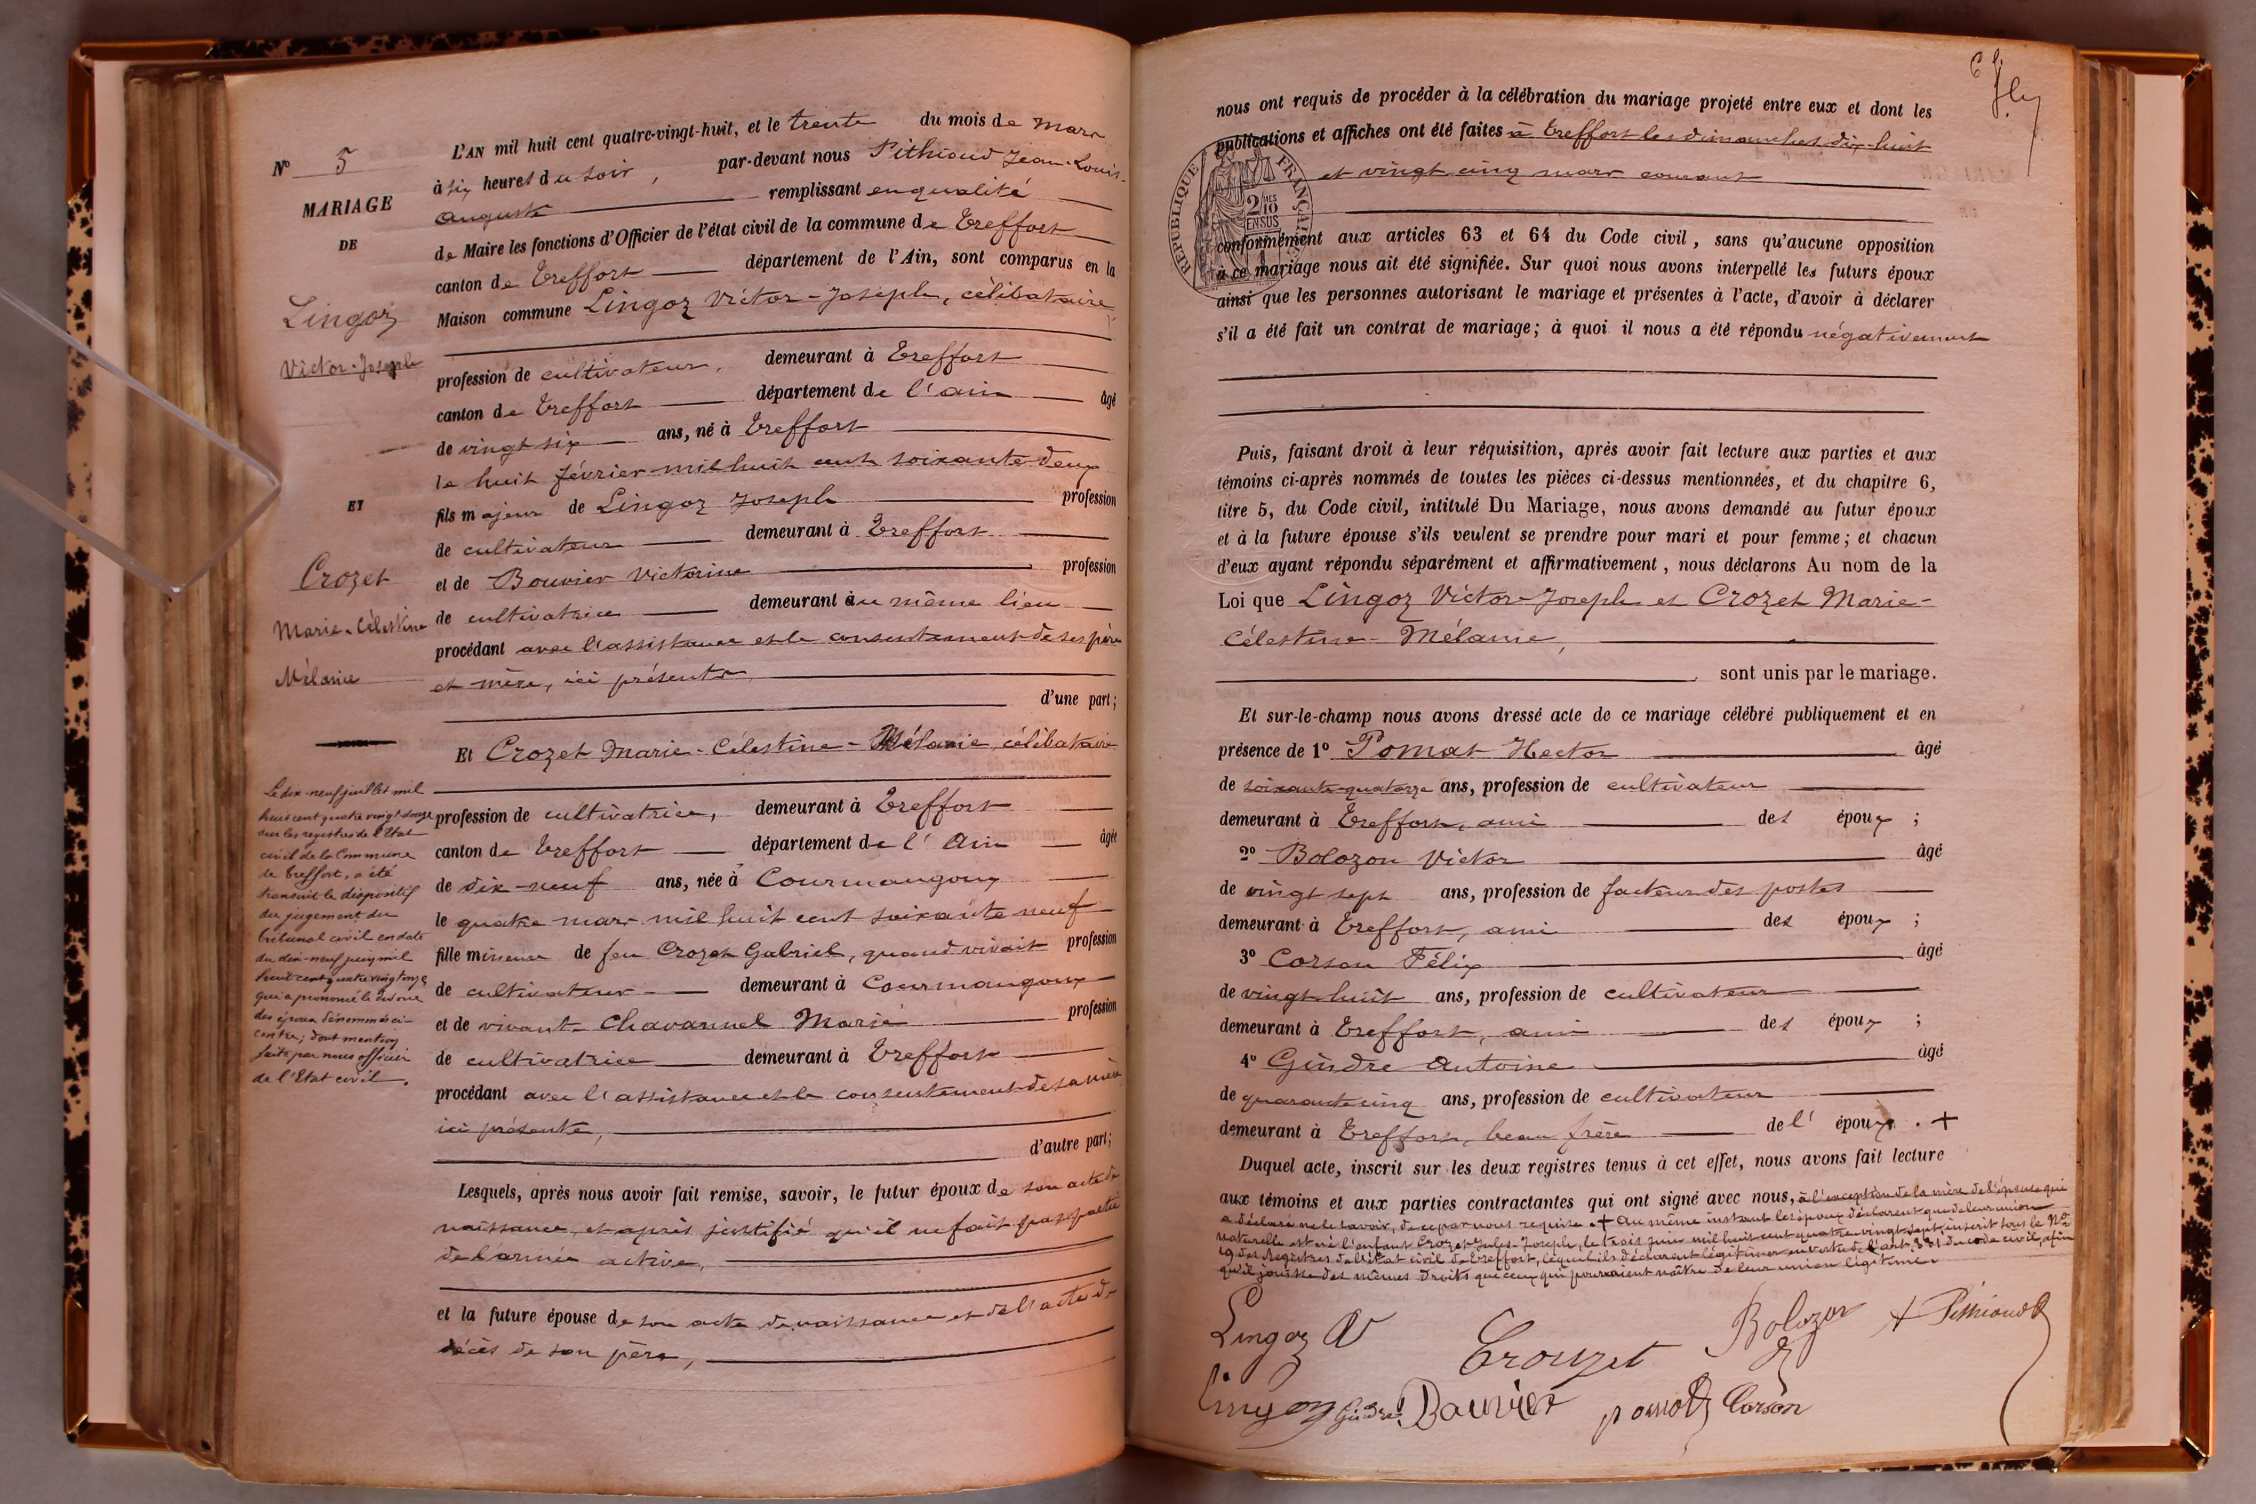 N° 5
MARIAGE
DE
Lingoz
Victor-Joseph
ET
Crozet
Marie-Célestine
Mélanie
Le dix-neuf juillet mil
huit cent quatre vingt douze
sur les registres de l'Etat
civil de la Commune
de Treffort, a été
transcrit le dispositif
du jugement du
tribunal civil en date
du dix-neuf mil
huit cent quatre vingt onze
qui a prononcé le divorce
des époux dénommés ci-
contre; dont mention
faite par nous officier
de l'Etat civil.
L'AN mil huit cent quatre-vingt-huit, et le trente du mois de Mars
à six heures du soir, par-devant nous Pithioud Jean-Louis-
Auguste remplissant en qualité
de Maire les fonctions d'Officier de l'état civil de la commune de Treffort
canton de Treffort département de l'Ain, sont comparus en la
Maison commune Lingoz Victor-Joseph, célibataire
profession de cultivateur, demeurant à Treffort
canton de Treffort département de l'ain âgé
de vingt six ans, né à Treffort
le huit février mil huit cent soixante-deux
fils majeur de Lingoz Joseph profession
de cultivateur demeurant à Treffort
et de Bouvier Victorine profession
de cultivatrice demeurant au même lieu
procédant avec l'assistance et le consentement de ses père
et mère, ici présents
d'une part;
Et Crozet Marie-Célestine-Mélanie, célibataire
profession de cultivatrice, demeurant à Treffort
canton de Treffort département de l'Ain âgée
de dix-neuf ans, née à Courmangoux
le quatre mars mil huit cent soixante neuf
fille mineure de feu Crozet Gabriel, quand vivait profession
de cultivateur demeurant à Courmangoux
et de vivante Chavannel Marie profession
de cultivatrice demeurant à Treffort
procédant avec l'assistance et le consentement de sa mère
ici présente,
d'autre part;
Lesquels, après nous avoir fait remise, savoir, le futur époux de son acte de
naissance, et après justifié qu'il ne fait pas partie
de l'armée active,
et la future épouse de son acte de naissance et de l'acte de
décès de son père,
nous ont requis de procéder à la célébration du mariage projeté entre eux et dont les
publications et affiches ont été faites à Treffort les dimanches dix-huit
et vingt cinq mars courant
RÉPUBLIQUE FRANÇAISE
2/10
MES
EN SUS
conformément aux articles 63 et 64 du Code civil, sans qu'aucune opposition
à ce mariage nous ait été signifiée. Sur quoi nous avons interpellé les futurs époux
ainsi que les personnes autorisant le mariage et présentes à l'acte, d'avoir à déclarer
s'il a été fait un contrat de mariage; à quoi il nous a été répondu négativement
Puis, faisant droit à leur réquisition, après avoir fait lecture aux parties et aux
témoins ci-après nommés de toutes les pièces ci-dessus mentionnées, et du chapitre 6,
titre 5, du Code civil, intitulé Du Mariage, nous avons demandé au futur époux
et à la future épouse s'ils veulent se prendre pour mari et pour femme; et chacun
d'eux ayant répondu séparément et affirmativement, nous déclarons Au nom de la
Loi que Lingoz Victor-Joseph et Crozet Marie-
Célestine-Mélanie,
sont unis par le mariage.
Et sur-le-champ nous avons dressé acte de ce mariage célébré publiquement et en
présence de 1° Pomat Hector âgé
de soixante-quatorze ans, profession de cultivateur
demeurant à Treffort, ami des époux;
2° Bolozon Victor âgé
de vingt sept ans, profession de facteur des postes
demeurant à Treffort, ami des époux;
3° Corson Félix âgé
de vingt huit ans, profession de cultivateur
demeurant à Treffort, ami des époux;
4° Gindre Antoine âgé
de quarante cinq ans, profession de cultivateur
demeurant à Treffort, beau frère de l'époux. +
Duquel acte, inscrit sur les deux registres tenus à cet effet, nous avons fait lecture
aux témoins et aux parties contractantes qui ont signé avec nous, à l'exception de la mère de l'épouse qui
a déclaré ne le savoir, de ce par nous requise. + Au même instant les époux déclarent que de leur union
naturelle est né l'enfant Crozet Jules-Joseph, le trois juin mil huit cent quatre-vingt-sept, inscrit sous le N°
19 des Registres de l'état civil de Treffort, lequel ils déclarent légitimer en vertu de l'art. 331 du code civil, afin
qu'il jouisse des mêmes droits que ceux qui pourraient naître de leur union légitime.
Lingoz V Crouzet Bolozon + Pithioud
Lingoz Gindre Bouvier pomat Corson